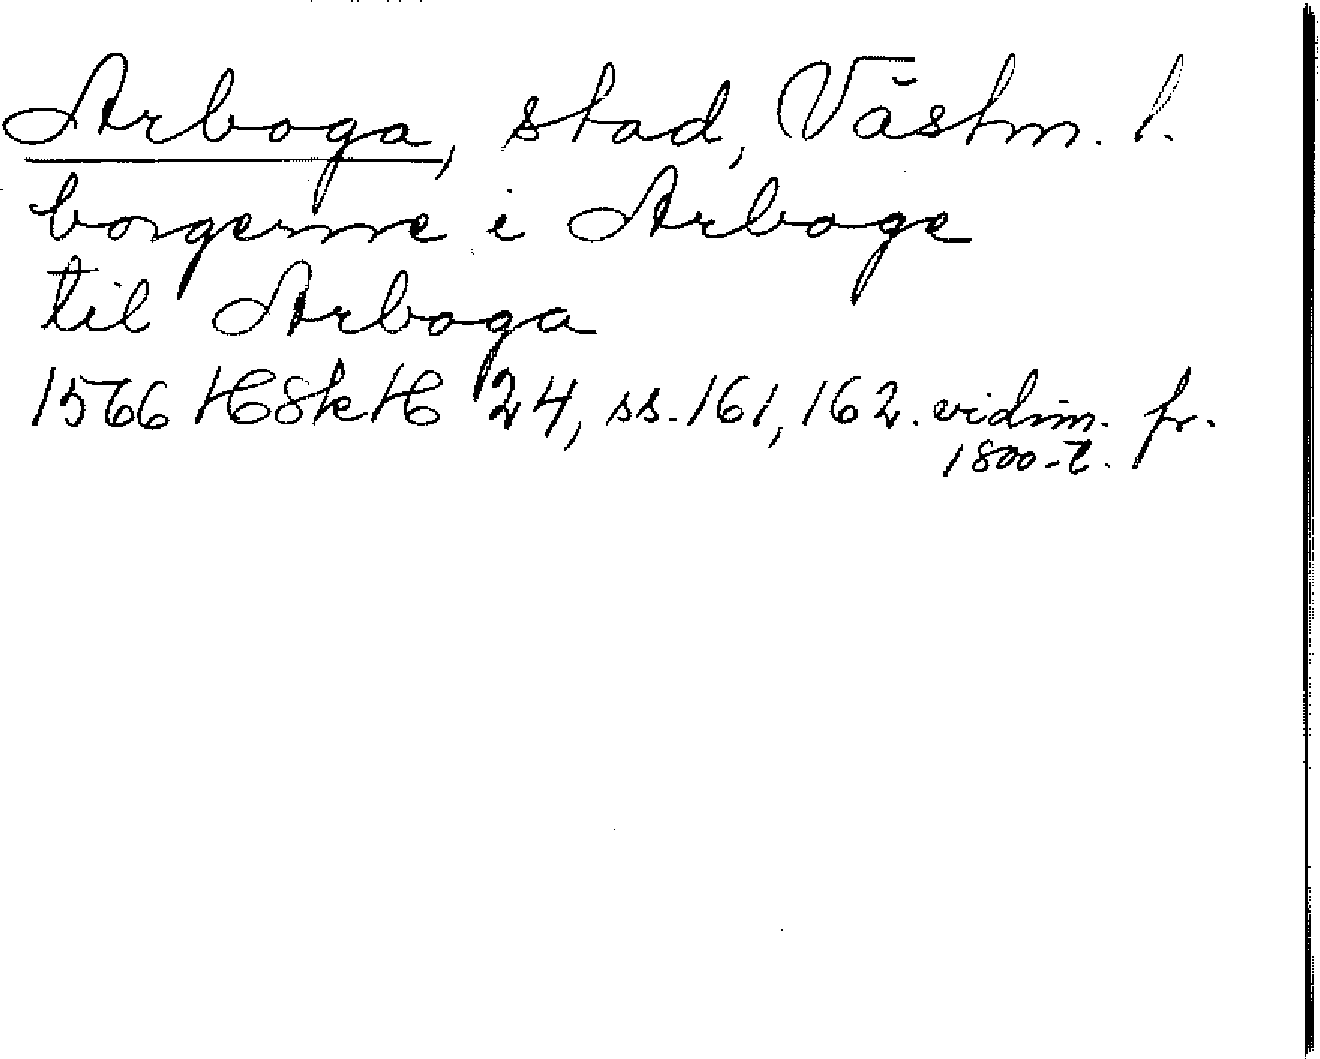 Arboga, stad, Västm. l.
borgerne i Arboge
til Arboga
1566 HSkH 24, ss. 161, 162. vidim. fr.
1800-t.